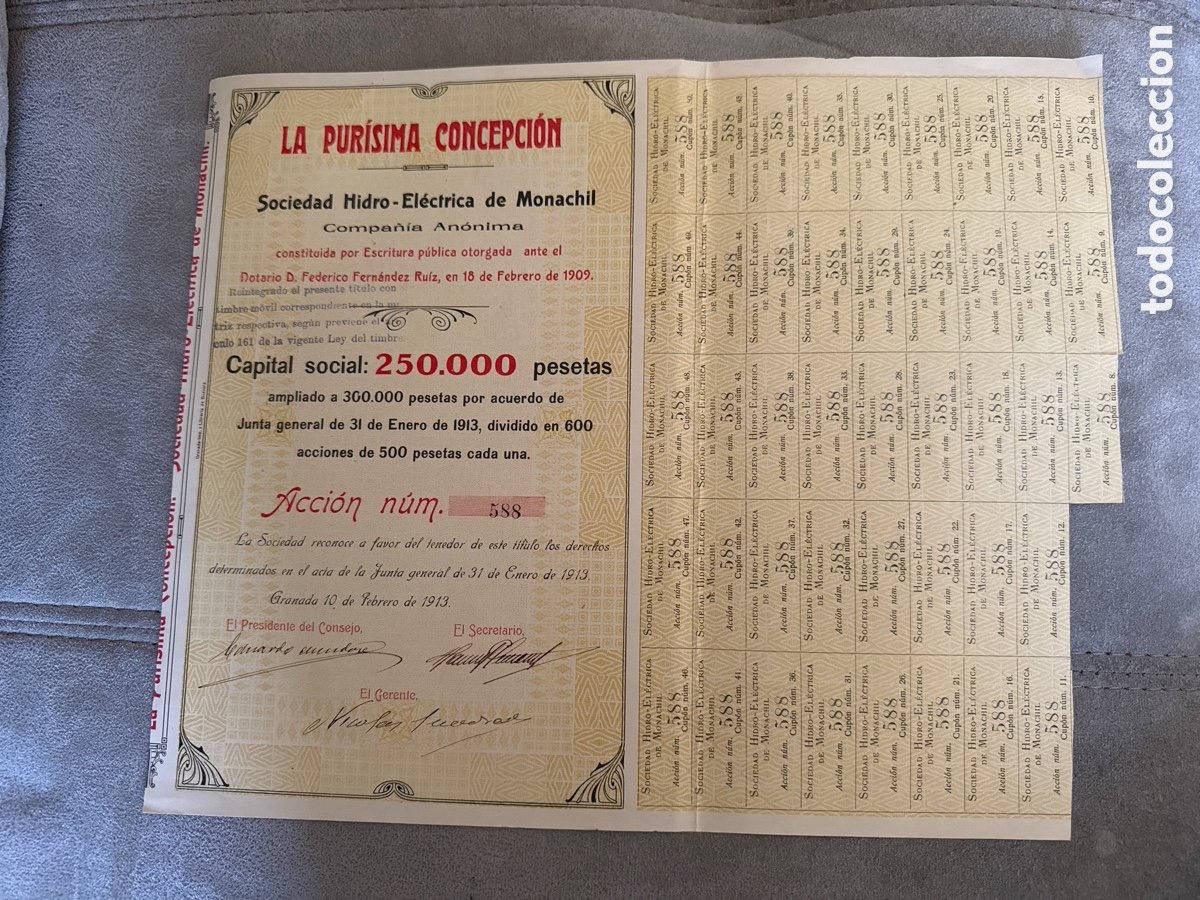 LA PURÍSIMA CONCEPCIÓN
Sociedad Hidro-Eléctrica de Monachil
Compañía Anónima
constituida por Escritura pública otorgada ante el
Notario D. Federico Fernández Ruíz, en 18 de Febrero de 1909.
Reintegrado el presente título con
timbre móvil correspondente en la
triz respectiva, según previene el
161 de la vigente Ley del timbr
Capital social: 250.000 pesetas
ampliado a 300.000 pesetas por acuerdo de
Junta general de 31 de Enero de 1913, dividido en 600
acciones de 500 pesetas cada una.
Acción núm. 588
La Sociedad reconoce a favor del tenedor de este título los derechos
determinados en el acta de la Junta general de 31 de Enero de 1913.
Granada 10 de Febrero de 1913.
El Presidente del Consejo,
El Secretario,
El Gerente,
La Purísima Concepción. Sociedad Hidro-Eléctrica de Monachil.
SOCIEDAD HIDRO-ELÉCTRICA
DE MONACHIL
Acción núm. 588
Cupón núm. 50.
SOCIEDAD HIDRO-ELÉCTRICA
DE MONACHIL
Acción núm. 588
Cupón núm. 45.
SOCIEDAD HIDRO-ELÉCTRICA
DE MONACHIL
Acción núm. 588
Cupón núm. 40.
SOCIEDAD HIDRO-ELÉCTRICA
DE MONACHIL
Acción núm. 588
Cupón núm. 35.
SOCIEDAD HIDRO-ELÉCTRICA
DE MONACHIL
Acción núm. 588
Cupón núm. 30.
SOCIEDAD HIDRO-ELÉCTRICA
DE MONACHIL
Acción núm. 588
Cupón núm. 25.
SOCIEDAD HIDRO-ELÉCTRICA
DE MONACHIL
Acción núm. 588
Cupón núm. 20.
SOCIEDAD HIDRO-ELÉCTRICA
DE MONACHIL
Acción núm. 588
Cupón núm. 15.
SOCIEDAD HIDRO-ELÉCTRICA
DE MONACHIL
Acción núm. 588
Cupón núm. 10.
SOCIEDAD HIDRO-ELÉCTRICA
DE MONACHIL
Acción núm. 588
Cupón núm. 49.
SOCIEDAD HIDRO-ELÉCTRICA
DE MONACHIL
Acción núm. 588
Cupón núm. 44.
SOCIEDAD HIDRO-ELÉCTRICA
DE MONACHIL
Acción núm. 588
Cupón núm. 39.
SOCIEDAD HIDRO-ELÉCTRICA
DE MONACHIL
Acción núm. 588
Cupón núm. 34.
SOCIEDAD HIDRO-ELÉCTRICA
DE MONACHIL
Acción núm. 588
Cupón núm. 29.
SOCIEDAD HIDRO-ELÉCTRICA
DE MONACHIL
Acción núm. 588
Cupón núm. 24.
SOCIEDAD HIDRO-ELÉCTRICA
DE MONACHIL
Acción núm. 588
Cupón núm. 19.
SOCIEDAD HIDRO-ELÉCTRICA
DE MONACHIL
Acción núm. 588
Cupón núm. 14.
SOCIEDAD HIDRO-ELÉCTRICA
DE MONACHIL
Acción núm. 588
Cupón núm. 9.
SOCIEDAD HIDRO-ELÉCTRICA
DE MONACHIL
Acción núm. 588
Cupón núm. 48.
SOCIEDAD HIDRO-ELÉCTRICA
DE MONACHIL
Acción núm. 588
Cupón núm. 43.
SOCIEDAD HIDRO-ELÉCTRICA
DE MONACHIL
Acción núm. 588
Cupón núm. 38.
SOCIEDAD HIDRO-ELÉCTRICA
DE MONACHIL
Acción núm. 588
Cupón núm. 33.
SOCIEDAD HIDRO-ELÉCTRICA
DE MONACHIL
Acción núm. 588
Cupón núm. 28.
SOCIEDAD HIDRO-ELÉCTRICA
DE MONACHIL
Acción núm. 588
Cupón núm. 23.
SOCIEDAD HIDRO-ELÉCTRICA
DE MONACHIL
Acción núm. 588
Cupón núm. 18.
SOCIEDAD HIDRO-ELÉCTRICA
DE MONACHIL
Acción núm. 588
Cupón núm. 13.
SOCIEDAD HIDRO-ELÉCTRICA
DE MONACHIL
Acción núm. 588
Cupón núm. 8.
SOCIEDAD HIDRO-ELÉCTRICA
DE MONACHIL
Acción núm. 588
Cupón núm. 47.
SOCIEDAD HIDRO-ELÉCTRICA
DE MONACHIL
Acción núm. 588
Cupón núm. 42.
SOCIEDAD HIDRO-ELÉCTRICA
DE MONACHIL
Acción núm. 588
Cupón núm. 37.
SOCIEDAD HIDRO-ELÉCTRICA
DE MONACHIL
Acción núm. 588
Cupón núm. 32.
SOCIEDAD HIDRO-ELÉCTRICA
DE MONACHIL
Acción núm. 588
Cupón núm. 27.
SOCIEDAD HIDRO-ELÉCTRICA
DE MONACHIL
Acción núm. 588
Cupón núm. 22.
SOCIEDAD HIDRO-ELÉCTRICA
DE MONACHIL
Acción núm. 588
Cupón núm. 17.
SOCIEDAD HIDRO-ELÉCTRICA
DE MONACHIL
Acción núm. 588
Cupón núm. 12.
SOCIEDAD HIDRO-ELÉCTRICA
DE MONACHIL
Acción núm. 588
Cupón núm. 46.
SOCIEDAD HIDRO-ELÉCTRICA
DE MONACHIL
Acción núm. 588
Cupón núm. 41
SOCIEDAD HIDRO-ELÉCTRICA
DE MONACHIL
Acción núm. 588
Cupón núm. 36.
SOCIEDAD HIDRO-ELÉCTRICA
DE MONACHIL
Acción núm. 588
Cupón núm. 31.
SOCIEDAD HIDRO-ELÉCTRICA
DE MONACHIL
Acción núm. 588
Cupón núm. 26.
SOCIEDAD HIDRO-ELÉCTRICA
DE MONACHIL
Acción núm. 588
Cupón núm. 21.
SOCIEDAD HIDRO-ELÉCTRICA
DE MONACHIL
Acción núm. 588
Cupón núm. 16.
SOCIEDAD HIDRO-ELÉCTRICA
DE MONACHIL
Acción núm. 588
Cupón núm. 11.
todocoleccion